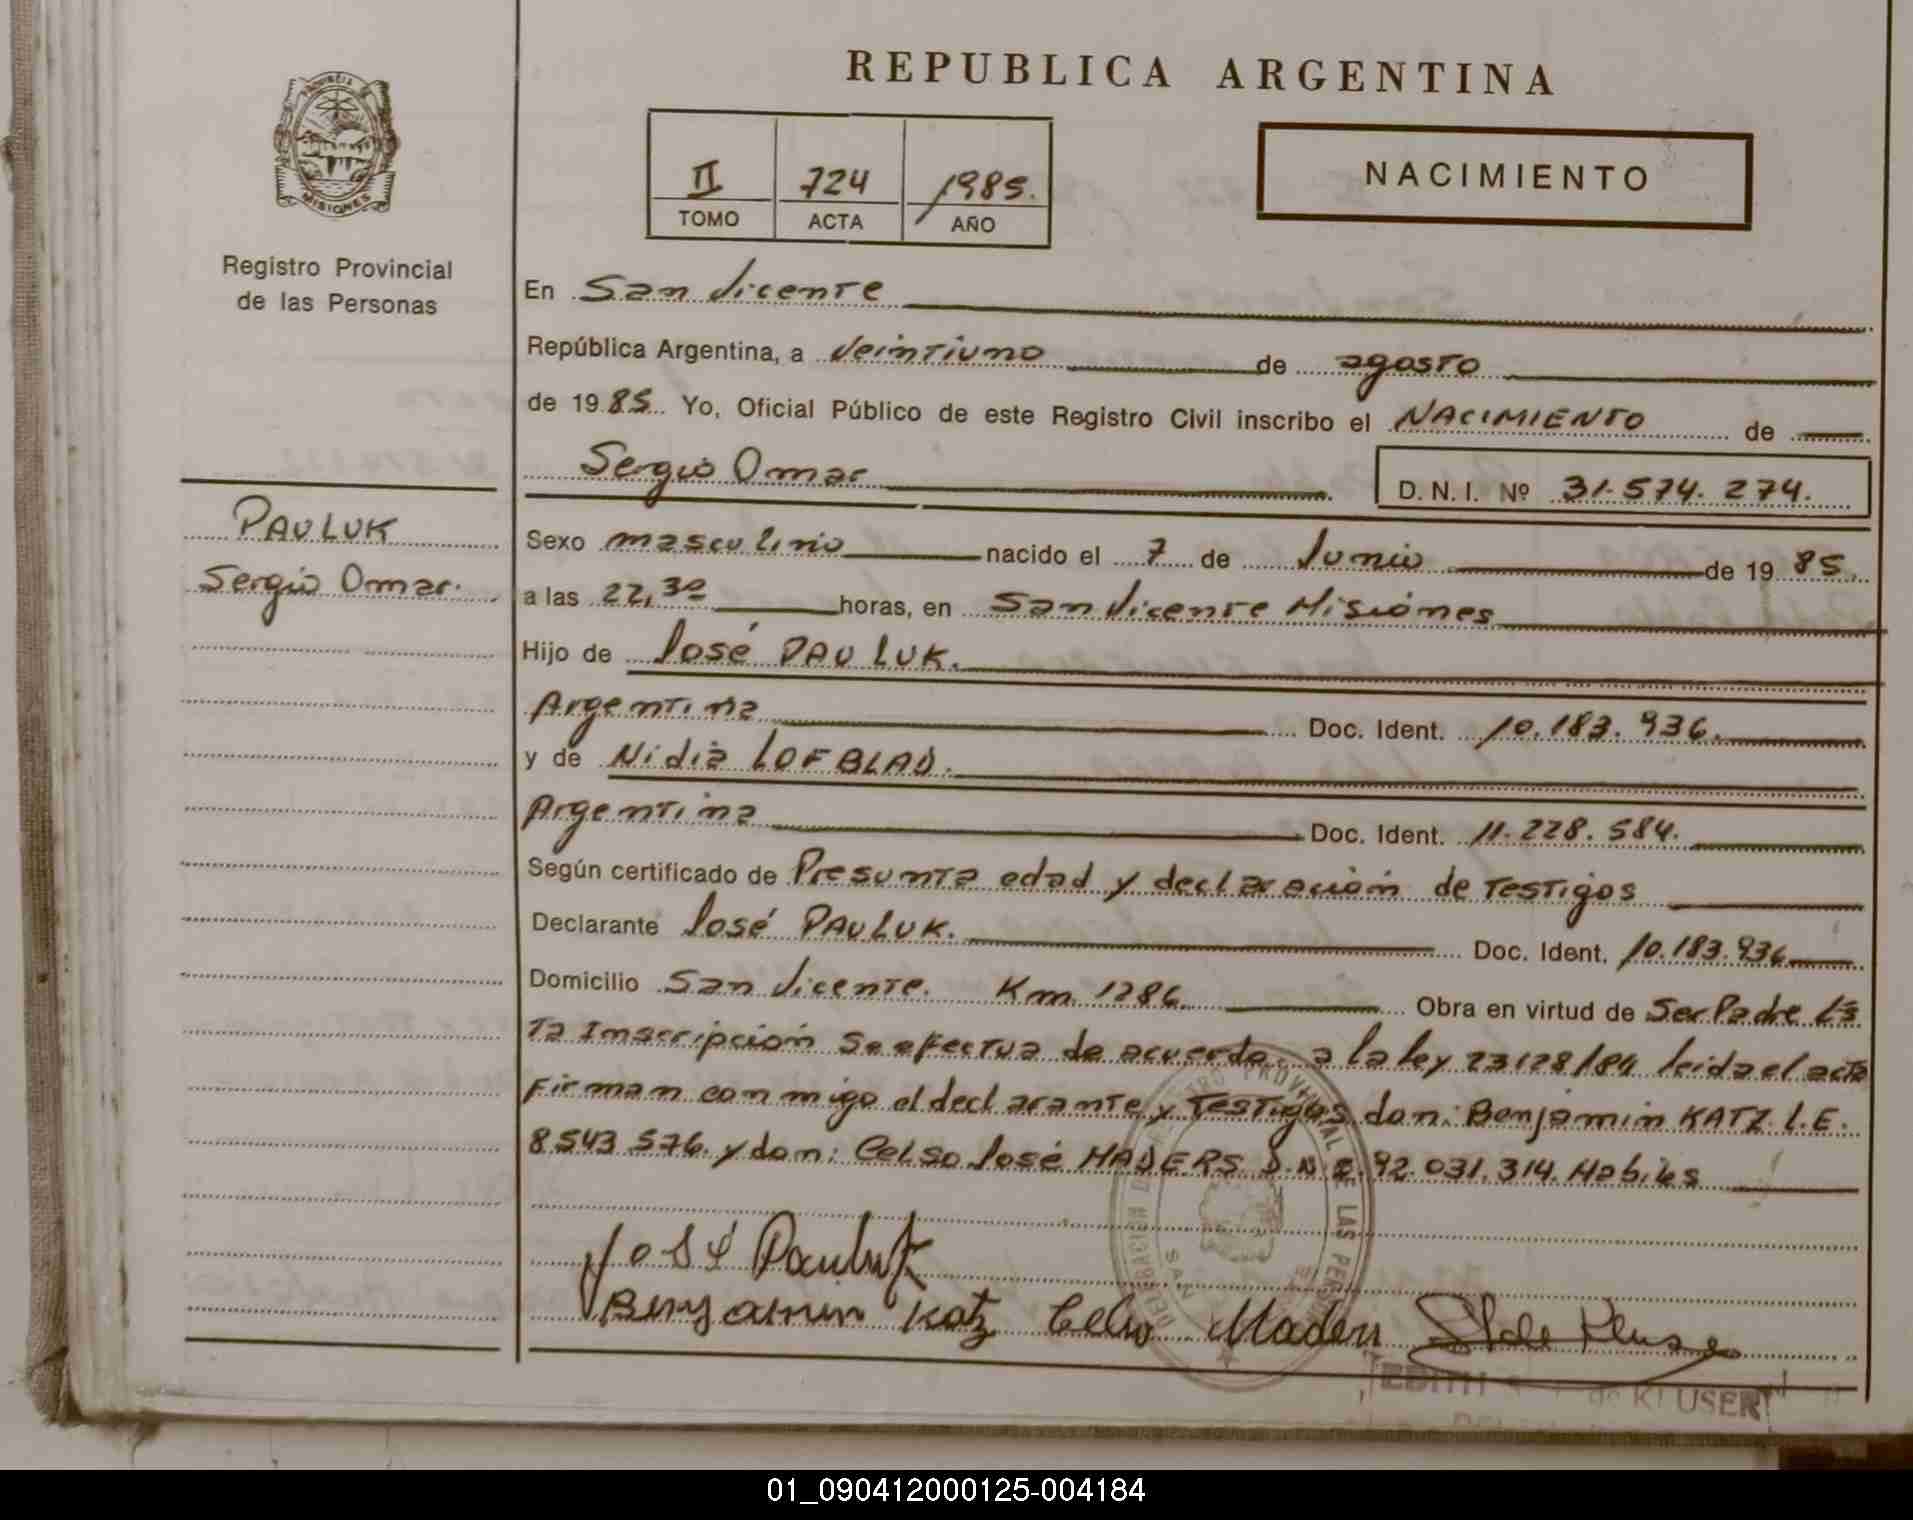 PROVINCIA DE
MISIONES
Registro Provincial
de las Personas
PAULUK
Sergio Omar.
REPUBLICA ARGENTINA
II 724 1985.
TOMO ACTA AÑO
NACIMIENTO
En San Vicente
República Argentina, a veintiuno de agosto
de 1985. Yo, Oficial Público de este Registro Civil inscribo el NACIMIENTO de
Sergio Omar D. N. I. Nº 31.574.274.
Sexo masculino nacido el 7 de Junio de 1985.
a las 22,30 horas, en San Vicente Misiones
Hijo de José PAULUK.
Argentina Doc. Ident. 10.183.936.
y de Nidia LOFBLAD.
Argentina Doc. Ident. 11.228.584.
Según certificado de Presunta edad y declaración de testigos
Declarante José PAULUK. Doc. Ident. 10.183.936
Domicilio San Vicente. Km. 1286. Obra en virtud de Ser Padre Es
ta Inscripción se efectua de acuerdo a la ley 23128/84 leida el acta
Firman conmigo el declarante y testigos don: Benjamin KATZ. L.E.
8543.576. y don: Celso José MADERS D.N.I. 92.031.314. Habiles
José Pauluk
Benjamin Katz Celso Maders
DELEGACION DEL REGISTRO PROVINCIAL DE LAS PERSONAS
SAN
EDITH de KLUSER
01_090412000125-004184